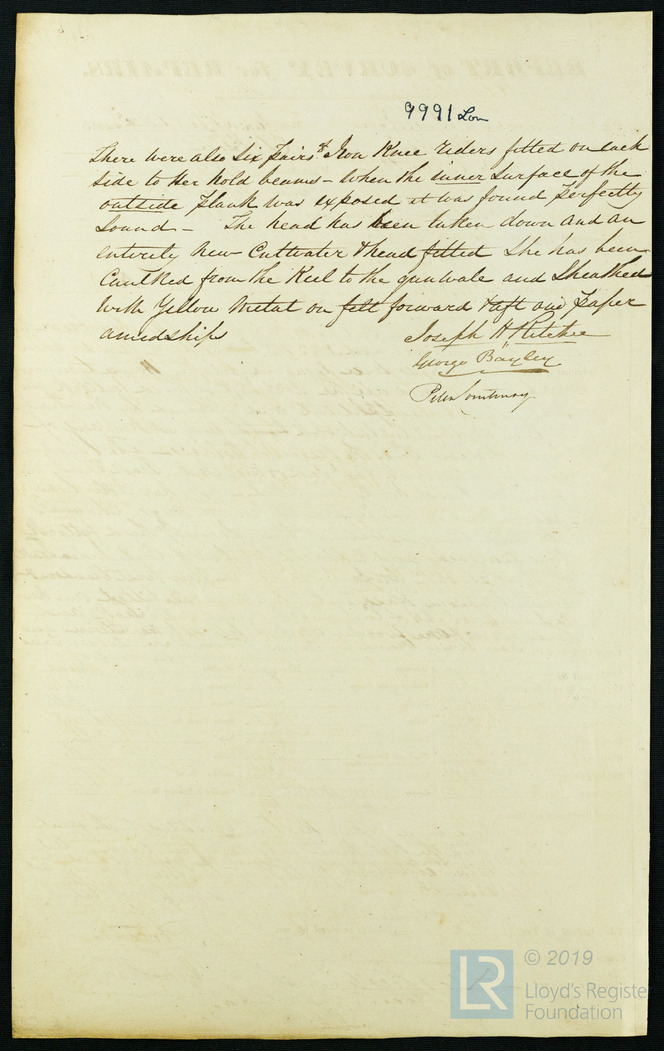 9991 Lon
There were also Six Pairs of Iron Knee riders fitted on each
side to Her hold beams - when the inner surface of the
outside plank was exposed it was found perfectly
Sound - The head has been taken down and an
entirely new Cutwater & head fitted She has been
Caulked from the Keel to the gunwale and Sheathed
with Yellow Metal on felt forward & aft and Paper
amidships
Joseph H Ritchie
George Bayley
Peter Courtenay
© 2019
LR
Lloyd's Register
Foundation